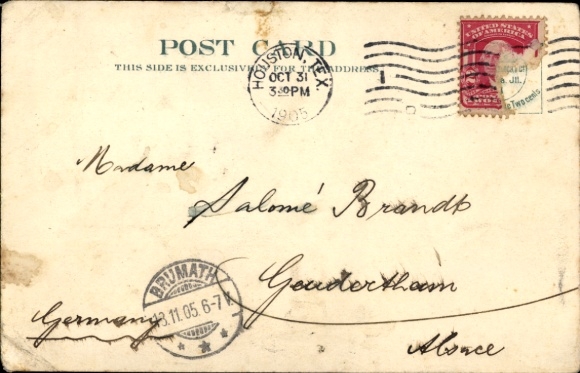 POST CARD
THIS SIDE IS EXCLUSIVELY FOR THE ADDRESS.
HOUSTON, TEX.
OCT 31
PM
1905
UNITED STATES
OF AMERICA
Two cents
Madame
Salomé Brandt
Geudertheim
Alsace
Germany
BRUMATH
13.11.05. 6-7